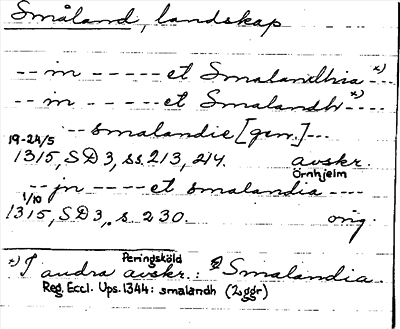 Småland, landskap
-- in ----- et Smalandhia *)--
-- in ----- et Smalandh *)----
-- smalandie [gen.]---
19-24/5
1315, SD 3, ss. 213, 214. avskr.
Örnhjelm
-- jn ---- et smalandia ----
1/10
1315, SD 3, s. 230. orig.
Peringsköld
*) I andra avskr.: Smalandia.
Reg. Eccl. Ups. 1344: smalandh (2 ggr)